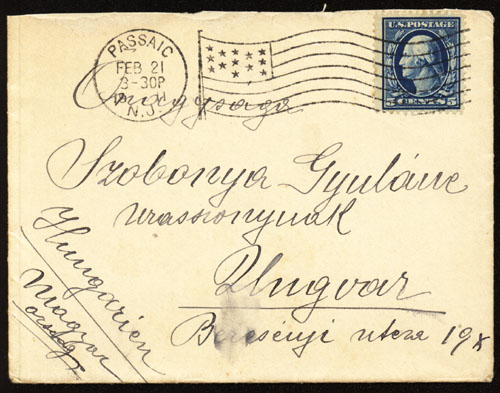 PASSAIC
FEB 21
3-30P
N.J.
U.S. POSTAGE
5 CENTS 5
Őnagysága
Szobonya Gyuláné
urasszonynak
Ungvar
Bercsényi utcza 19
Hungarien
Magyar
ország